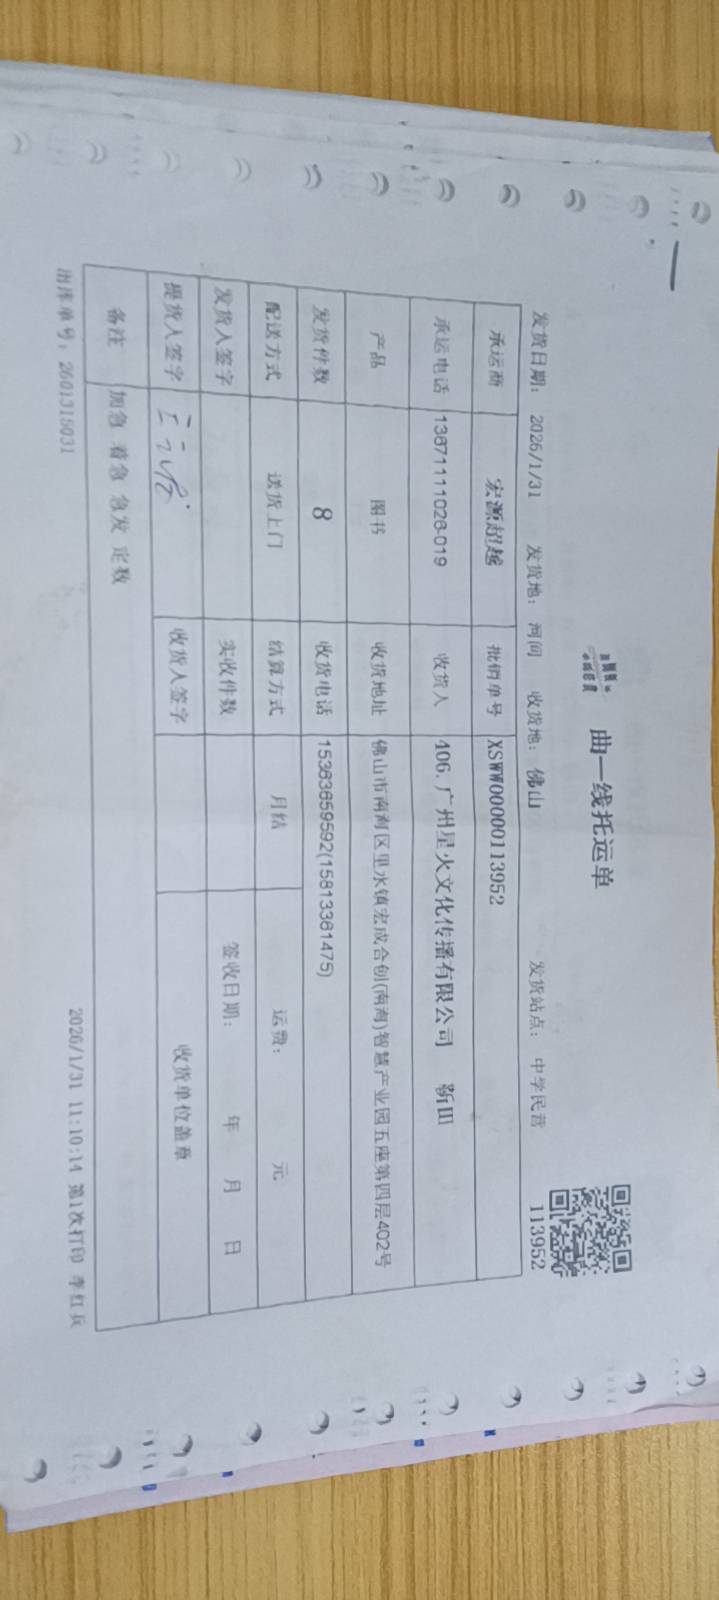 曲一线托运单
发货日期： 2026/1/31 发货地： 河间 收货地： 佛山 发货站点： 中学民营 113952
承运商 宏源超越 批销单号 XSWW00000113952
承运电话 13671111026-019 收货人 406.广州星火文化传播有限公司 靳田
产品 图书 收货地址 佛山市南海区里水镇宏成合创(南海)智慧产业园五座第四层402号
发货件数 8 收货电话 15383659592(15813361475)
配送方式 送货上门 结算方式 月结 运费： 元
发货人签字 实收件数 签收日期： 年 月 日
提货人签字 收货人签字 收货单位盖章
备注 加急 着急 急发 定数
出库单号：2601315031 2026/1/31 11:10:14 第1次打印 李红兵